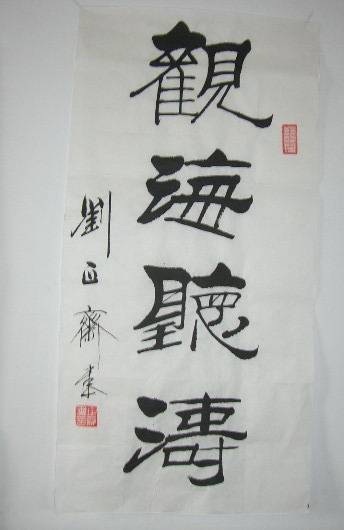 觀海聽濤
劉正齋書